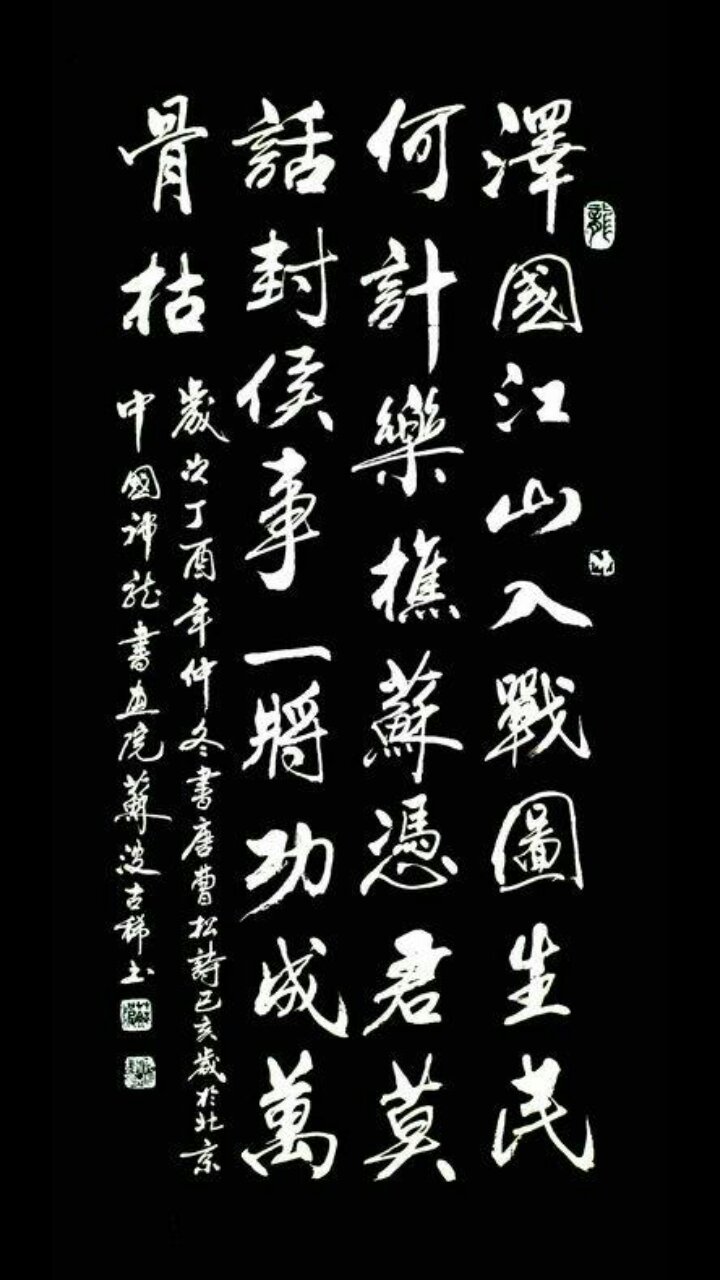 澤國江山入戰圖生民
何計樂樵蘇憑君莫
話封侯事一將功成萬
骨枯
歲次丁酉年仲冬書唐曹松詩己亥歲於北京
中國神龍書畫院蘇波古稀